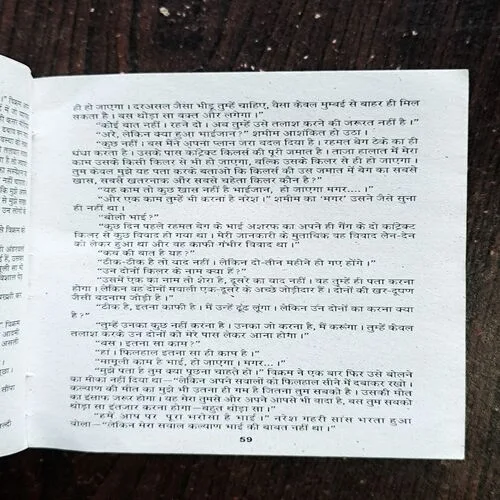 ही हो जाएगा। दरअसल जैसा भीडू तुम्हें चाहिए, वैसा केवल मुम्बई से बाहर ही मिल
सकता है। बस थोड़ा सा वक्त और लगेगा।"
"कोई बात नहीं। रहने दो। अब तुम्हें उसे तलाश करने की जरूरत नहीं है।"
"अरे, लेकिन क्या हुआ भाईजान?" शमीम आशंकित हो उठा।
"कुछ नहीं। बस मैंने अपना प्लान जरा बदल दिया है। रहमत बेग ठेके का ही
धंधा करता है। उसके पास कांट्रेक्ट किलर्स की पूरी जमात है। ताजा हालात में मेरा
काम उसके किसी किलर से भी हो जाएगा, बल्कि उसके किलर से ही हो जाएगा।
तुम केवल मुझे यह पता करके बताओ कि किलर्स की उस जमात में बेग का सबसे
खास, सबसे खतरनाक और सबसे चहेता किलर कौन है?"
"यह काम तो कुछ खास नहीं है भाईजान, हो जाएगा मगर....।"
"और एक काम तुम्हें भी करना है नरेश।" शमीम का 'मगर' उसने जैसे सुना
ही नहीं था।
"बोलो भाई?"
"कुछ दिन पहले रहमत बेग के भाई अशरफ का अपने ही गैंग के दो कांट्रेक्ट
किलर से कुछ विवाद हो गया था। मेरी जानकारी के मुताबिक वह विवाद लेन-देन
को लेकर हुआ था और वह काफी गंभीर विवाद था।"
"कब की बात है यह?"
"ठीक-ठीक है तो याद नहीं। लेकिन दो-तीन महीने हो गए होंगे।"
"उन दोनों किलर के नाम क्या हैं?"
"उसमें एक का नाम तो शेरा है, दूसरे का याद नहीं। वह तुम्हें ही पता करना
होगा। लेकिन वह दोनों मवाली एक-दूसरे के अच्छे जोड़ीदार हैं। दोनों की खर-दूषण
जैसी बदनाम जोड़ी है।"
"ठीक है, इतना काफी है। मैं उन्हें ढूंढ लूंगा। लेकिन उन दोनों का करना क्या
है?"
"तुम्हें उनका कुछ नहीं करना है। उनका जो करना है, मैं करूंगा। तुम्हें केवल
तलाश करके उन दोनों को मेरे पास लेकर आना होगा।"
"बस। इतना सा काम?"
"हां। फिलहाल इतना सा ही काम है।"
"मामूली काम है भाई, हो जाएगा। मगर...।"
"मुझे पता है तुम क्या पूछना चाहते हो।" विक्रम ने एक बार फिर उसे बोलने
का मौका नहीं दिया था—"लेकिन अपने सवालों को फिलहाल सीने में दबाकर रखो।
कल्याण की मौत का मुझे भी उतना ही गम है जितना तुम सबको है। उसकी मौत
का इंसाफ जरूर होगा। यह मेरा तुमसे और अपने आपसे भी वादा है, बस तुम सबको
थोड़ा सा इंतजार करना होगा—बहुत थोड़ा सा।"
"हमें आप पर पूरा भरोसा है भाई।" नरेश गहरी सांस भरता हुआ
बोला—"लेकिन मेरा सवाल कल्याण भाई की बाबत नहीं था।"
59